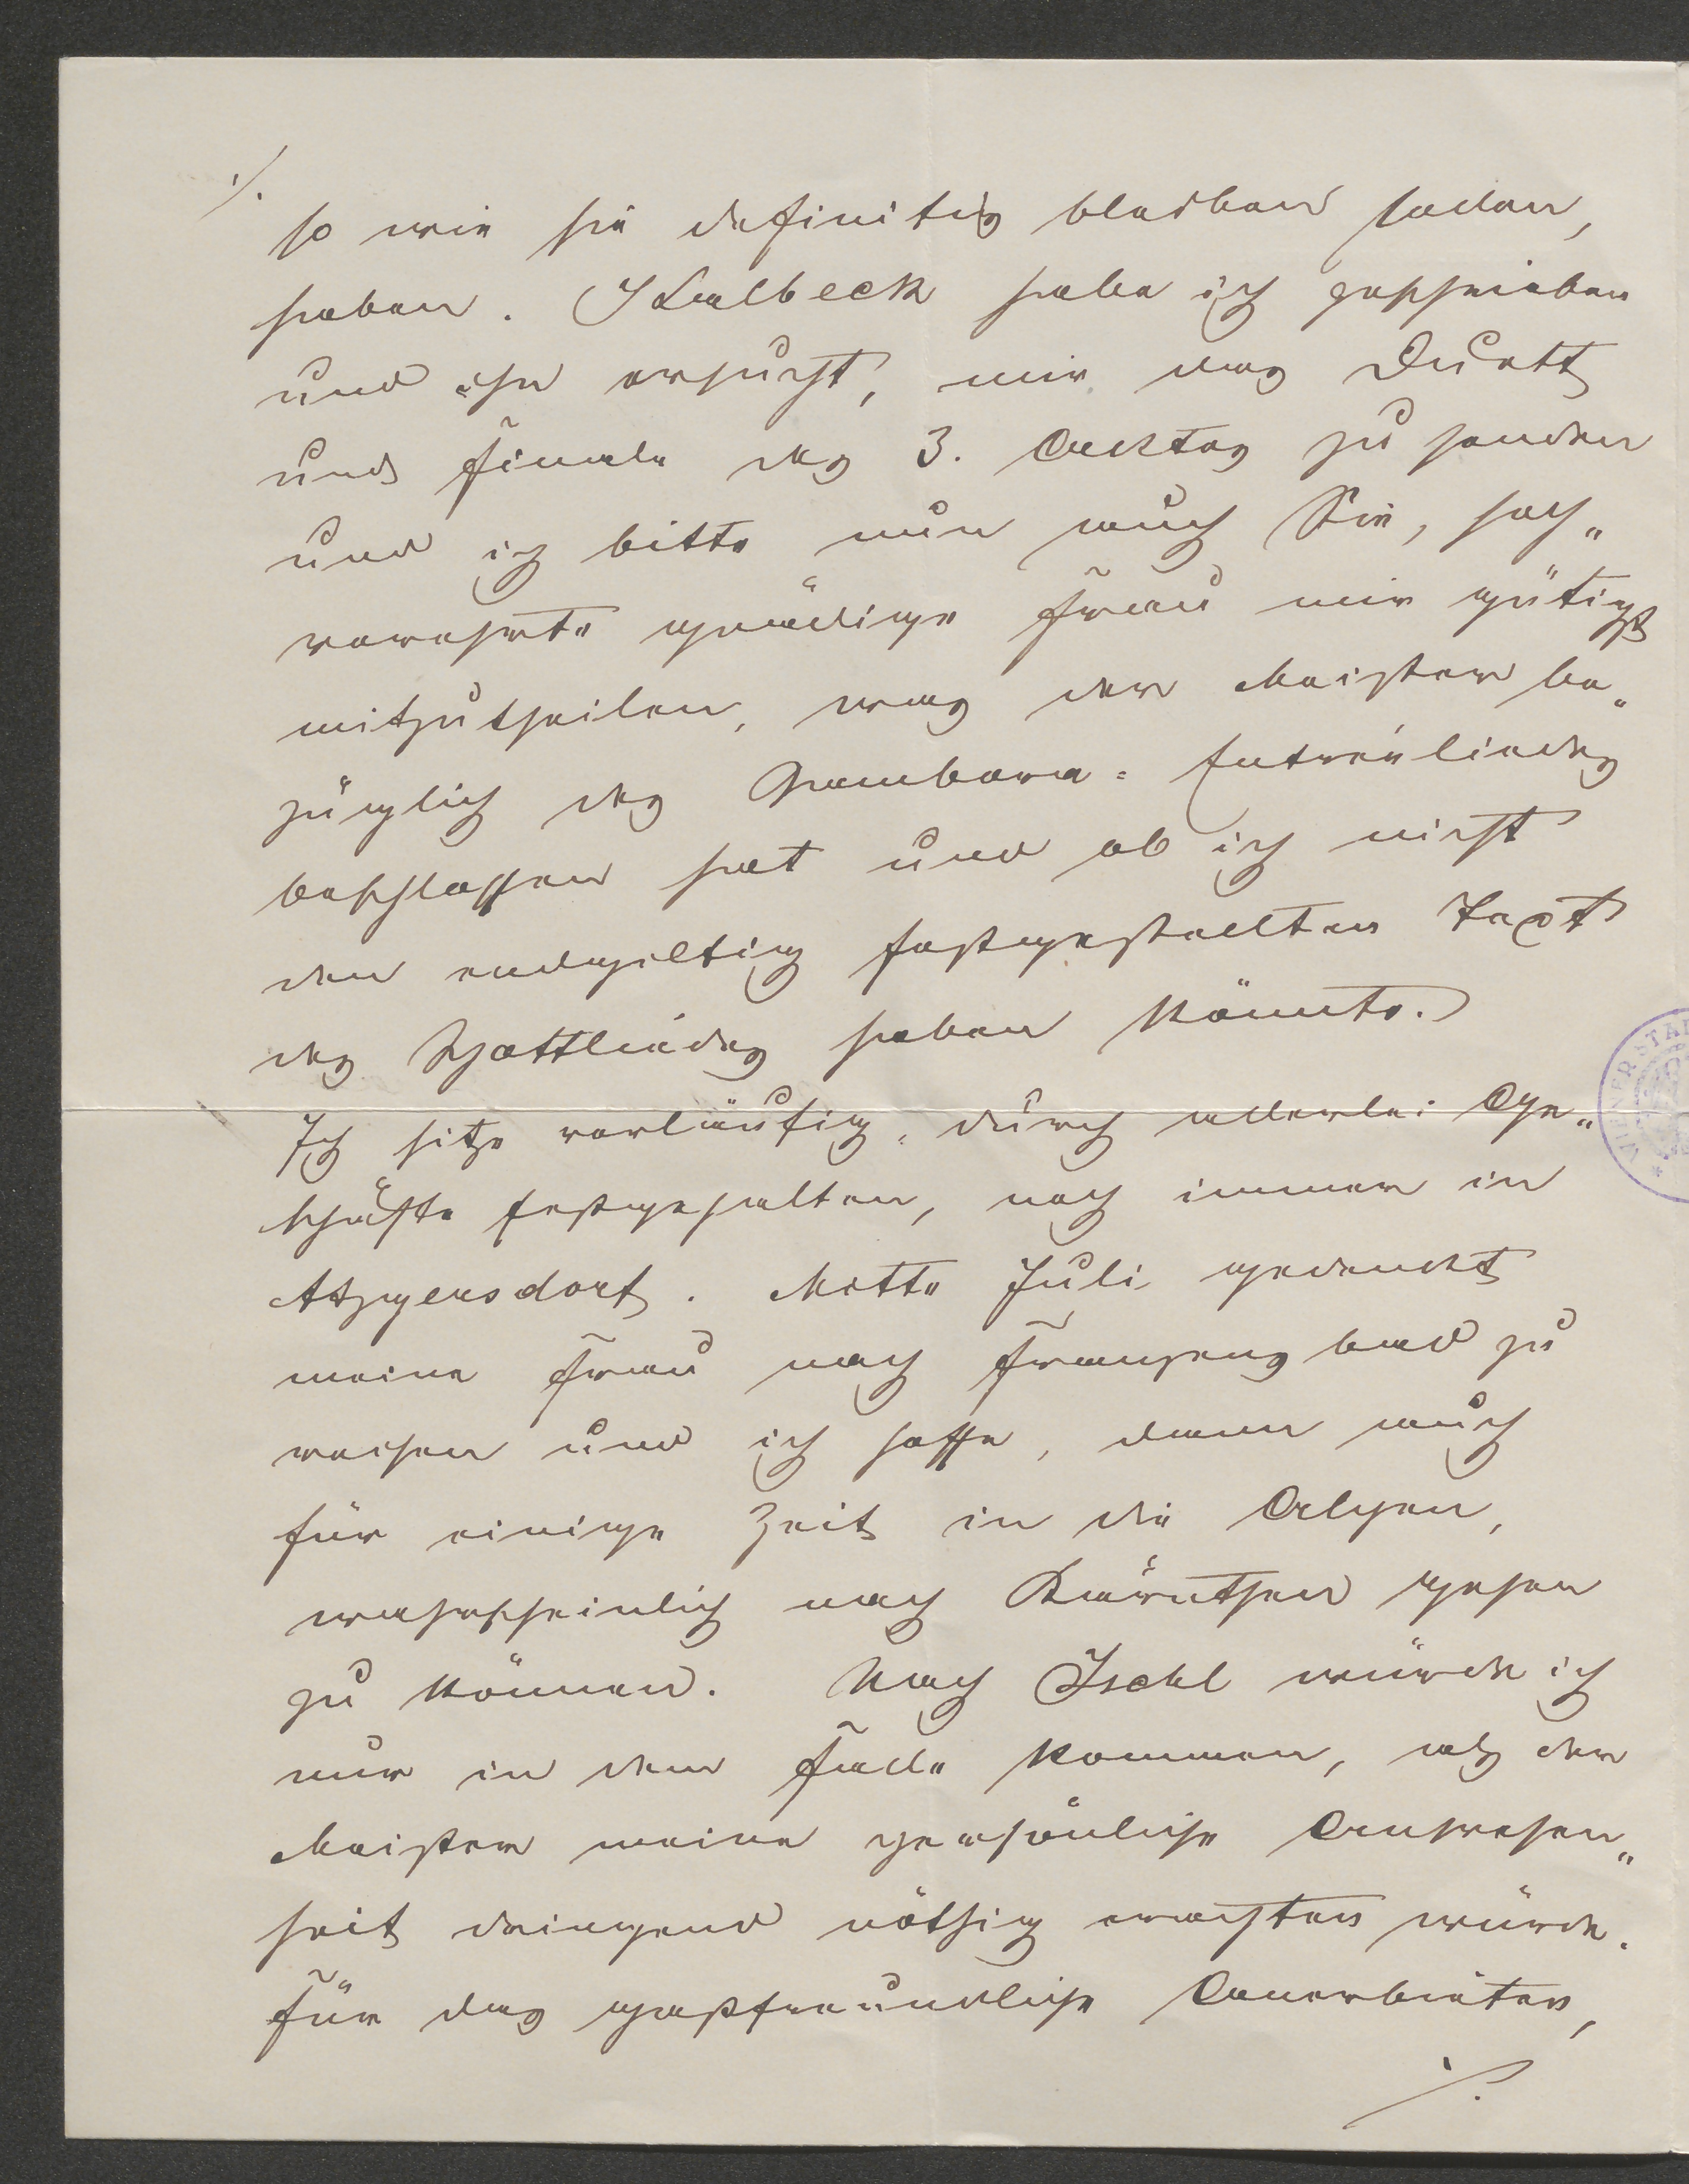 ./.
so wie sie definitiv bleiben sollen,
haben. Kalbeck habe ich geschrieben
und ihn ersucht, mir das Duett
und Finale des 3. Acktes zu senden
und ich bitte nun auch Sie, hoch„
verehrte gnädige Frau mir gütigst
mitzutheilen, was der Meister be„
züglich des Gambara-Entréeliedes
beschlossen hat und ob ich nicht
den endgiltig festgestellten Text
des Spottliedes haben könnte.
Ich sitze vorläufig, durch allerlei Ge„
schäfte festgehalten, noch immer in
Atzgersdorf. Mitte Juli gedenkt
meine Frau nach Franzensbad zu
reisen und ich hoffe, dann auch
für einige Zeit in die Alpen,
wahrscheinlich nach Kärnthen gehen
zu können. Nach Ischl würde ich
nur in dem Falle kommen, als der
Meister meine persönliche Anwesen„
heit dringend nöthig erachten würde.
Für das gastfreundliche Anerbieten,
./.
WIENER STA